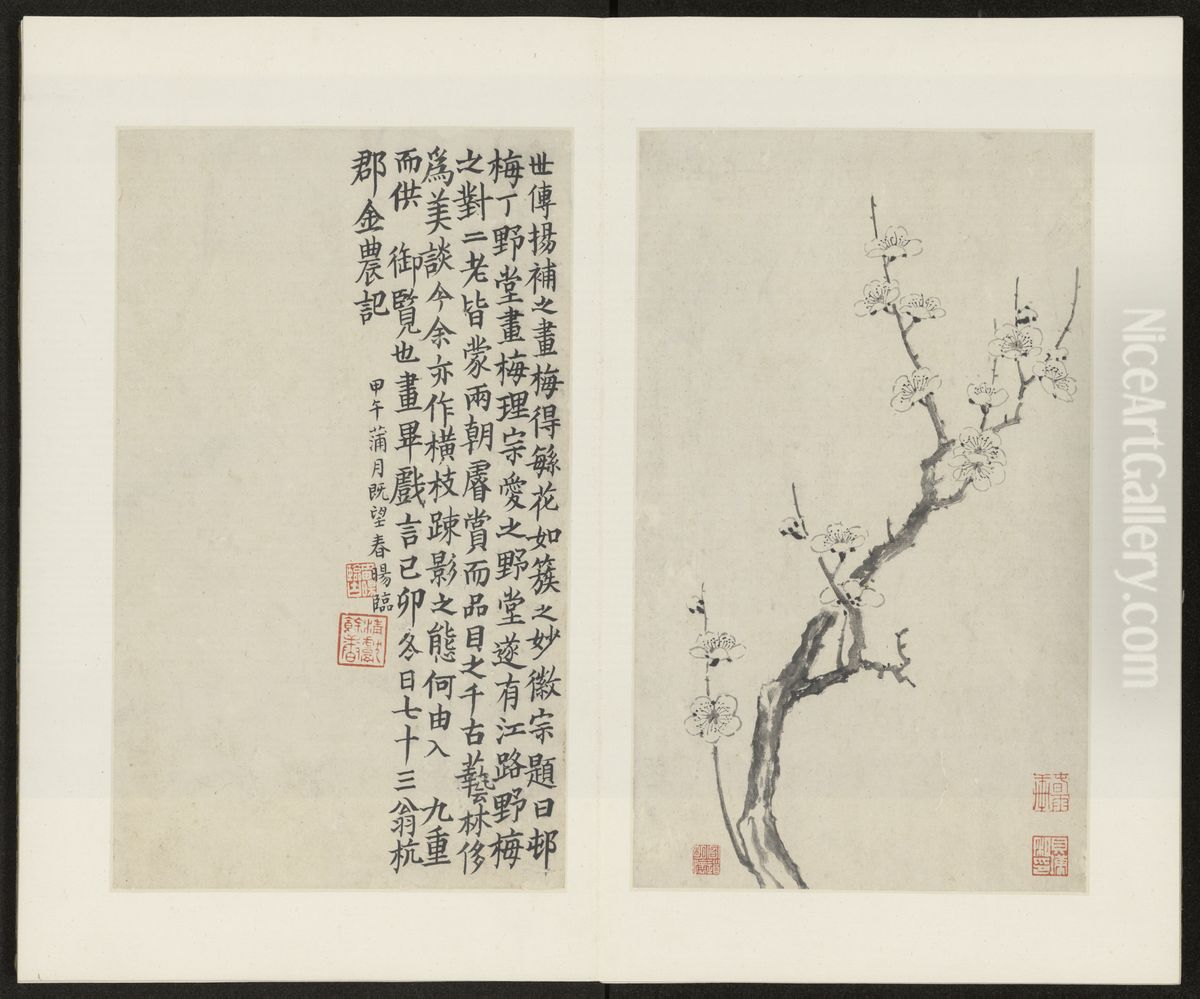 世傳揚補之畫梅得繇花如簇之妙徽宗題曰邨
梅丁野堂畫梅理宗愛之野堂遂有江路野梅
之對二老皆蒙兩朝睿賞而品目之千古藝林侈
爲美談今余亦作橫枝踈影之態何由入 九重
而供 御覽也畫畢戲言己卯冬日七十三翁杭
郡金農記
甲午蒲月既望春暘臨
NiceArtGallery.com